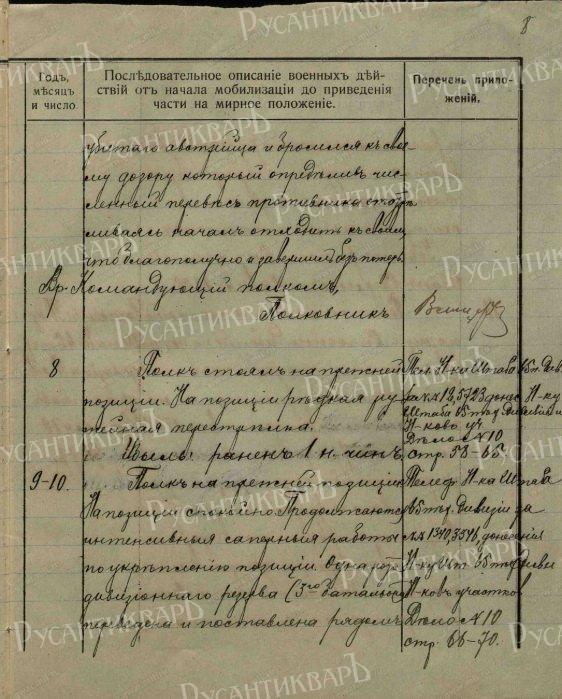 8
Годъ, мѣсяцъ и число.
Послѣдовательное описаніе военныхъ дѣй-
ствій отъ начала мобилизаціи до приведенія
части на мирное положеніе.
Перечень прило-
женій.
убитаго австрійца и бросился къ свое-
му дозору который опредѣливъ чис-
ленный перевѣсъ противника
началъ отходить къ своимъ,
что благополучно и завершилъ безъ потерь.
Вр. Командующій полкомъ,
Полковникъ
8
Полкъ стоялъ на прежней
позиціи. На позиціи рѣдкая ру-
жейная перестрѣлка.
Выль: раненъ 1 н. чинъ.
Тел. Н-ку Штаба 65 п. Див.
Н-ку
Штаба 65 Дивизіи и
Н-ковъ уч.
Дѣло № 10
стр. 58-65.
9-10.
Полкъ на прежней позиціи
На позиціи спокойно. Продолжаются
интенсивныя саперныя работы
по укрѣпленію позиціи. Одна рота
дивизіоннаго резерва (3го баталіона)
переведена и поставлена рядомъ
Телеф. Н-ка Штаба
65 Дивизіи за
№№ 1340, 3548, донесенія
Н-ку Шт. 65 Дивизіи
Н-ковъ участковъ
Дѣло № 10
стр. 66-70.
РУСАНТИКВАРЪ